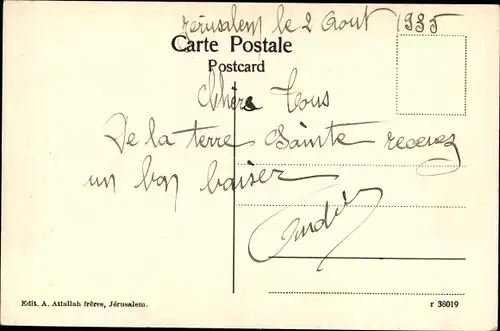 Jerusalem le 2 Aout 1935
Carte Postale
Postcard
Chère Tous
De la terre Sainte recevez
un bon baiser
André
Edit. A. Attallah frères, Jérusalem.
r 38019